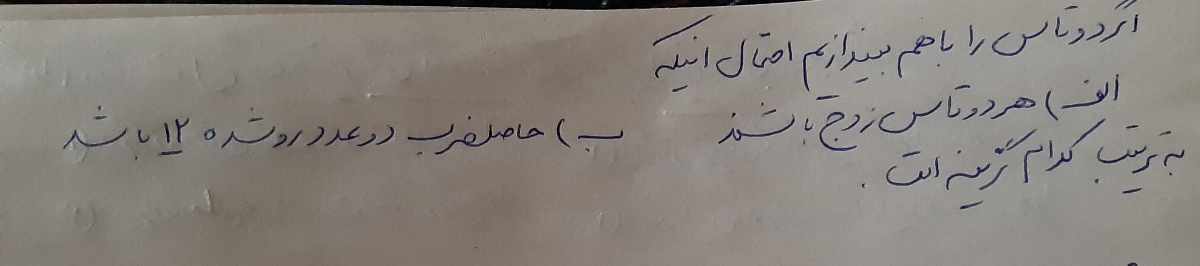 اگر دو تاس را با هم بیندازیم احتمال اینکه
الف) هر دو تاس زوج باشند ب) حاصلضرب دو عدد رو شده ۱۲ باشد
به ترتیب کدام گزینه است.